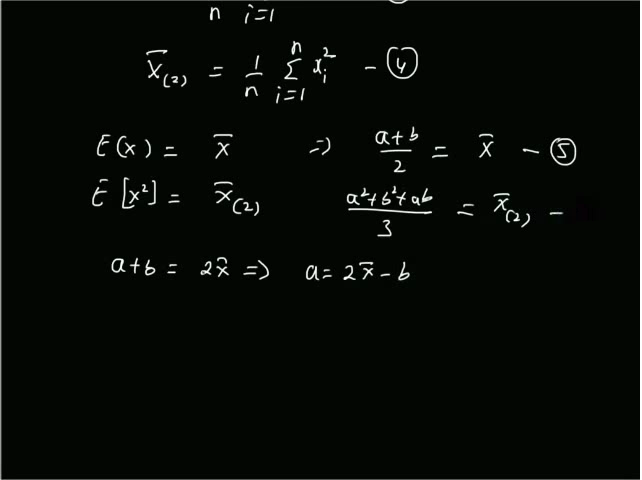 n i=1
x̄₍₂₎ = 1/n Σ_{i=1}^{n} xᵢ² - ④
E(x) = x̄ ⇒ (a+b)/2 = x̄ - ⑤
E[x²] = x̄₍₂₎ (a²+b²+ab)/3 = x̄₍₂₎ -
a+b = 2x̄ ⇒ a = 2x̄ - b